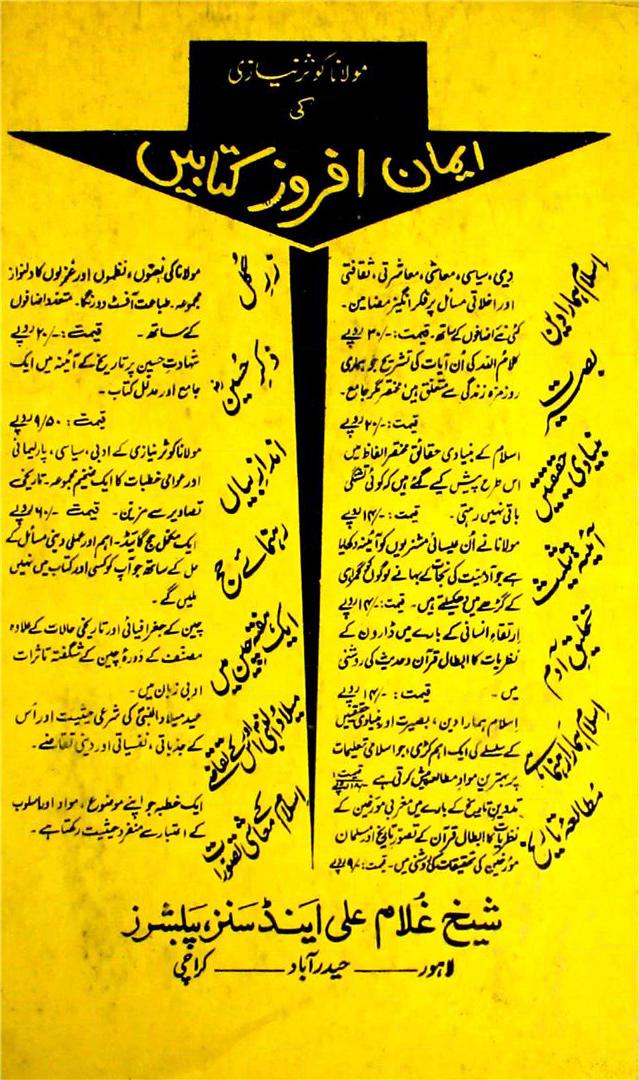 مولانا کوثر نیازی
کی
ایمان افروز کتابیں
اسلام ہمارا دین
دینی، سیاسی، معاشی، معاشرتی، ثقافتی
اور اخلاقی مسائل پر فکر انگیز مضامین۔
کئی نئے اضافوں کے ساتھ۔ قیمت: -/۳۰ روپے
بصیرت
کلام اللہ کی اُن آیات کی تشریح جو ہماری
روزمرہ زندگی سے متعلق ہیں مختصر مگر جامع۔
قیمت: -/۲۰ روپے
بنیادی حقیقتیں
اسلام کے بنیادی حقائق مختصر الفاظ میں
اس طرح پیش کیے گئے ہیں کہ کوئی تشنگی
باقی نہیں رہتی۔ قیمت: -/۱۴ روپے
آئینہ تثلیث
مولانا نے اُن عیسائی مشنریوں کو آئینہ دکھایا
ہے جو آدمیت کی نجات کے بہانے لوگوں کو گمراہی
کے گڑھے میں دھکیلتے ہیں۔ قیمت: -/۱۴ روپے
تخلیقِ آدم
اِرتقاءِ انسانی کے بارے میں ڈارون کے
نظریات کا ابطال قرآن و حدیث کی روشنی
میں۔ قیمت: -/۱۴ روپے
اسلام ہمارا رہنما ہے
اِسلام ہمارا دین، بصیرت اور بنیادی حقیقتیں
کے سلسلے کی ایک اہم کڑی، جو اسلامی تعلیمات
پر بہترین مواد مطالعہ پیش کرتی ہے قیمت: -/۱۸ روپے
مطالعہ تاریخ
تدوینِ تاریخ کے بارے میں مغربی مؤرخین کے
نظریات کا ابطال قرآن کے تصورِ تاریخ اور مسلمان
مؤرخین کی تحقیقات کی روشنی میں۔ قیمت: -/۹ روپے
زرِ گل
مولانا کی نعتوں، نظموں اور غزلوں کا دلنواز
مجموعہ۔ طباعت آفسٹ دو رنگا۔ متعدد اضافوں
کے ساتھ۔ قیمت: -/۲۰ روپے
ذکرِ حسینؓ
شہادتِ حسین پر تاریخ کے آئینہ میں ایک
جامع اور مدلل کتاب۔
قیمت: ۹/۵۰ روپے
اندازِ بیاں
مولانا کوثر نیازی کے ادبی، سیاسی، پارلیمانی
اور عوامی خطبات کا ایک ضخیم مجموعہ۔ تاریخی
تصاویر سے مزین۔ قیمت -/۶۰ روپے
رہنمائے حج
ایک مکمل حج گائیڈ۔ اہم اور عملی دینی مسائل کے
حل کے ساتھ جو آپ کو کسی اور کتاب میں نہیں
ملیں گے۔
ایک ہفتہ چین میں
چین کے جغرافیائی اور تاریخی حالات کے علاوہ
مصنف کے دورۂ چین کے شگفتہ تاثرات
ادبی زبان میں۔
میلاد النبیؐ اور اس کے تقاضے
عید میلاد النبی کی شرعی حیثیت اور اُس
کے جذباتی، نفسیاتی اور دینی تقاضے۔
اسلام کے معاشی تصورات
ایک خطبہ جو اپنے موضوع، مواد اور اسلوب
کے اعتبار سے منفرد حیثیت رکھتا ہے۔
شیخ غلام علی اینڈ سنز، پبلشرز
لاہور ــــ حیدرآباد ــــ کراچی